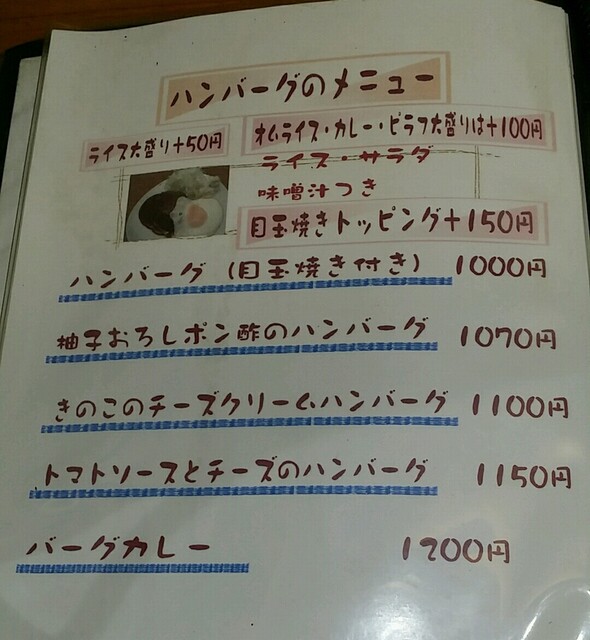 ハンバーグのメニュー
オムライス・カレー・ピラフ大盛りは+100円
ライス大盛り+50円
ライス・サラダ
味噌汁つき
目玉焼きトッピング+150円
ハンバーグ（目玉焼き付き） 1000円
柚子おろしポン酢のハンバーグ 1070円
きのこのチーズクリームハンバーグ 1100円
トマトソースとチーズのハンバーグ 1150円
バーグカレー 1200円